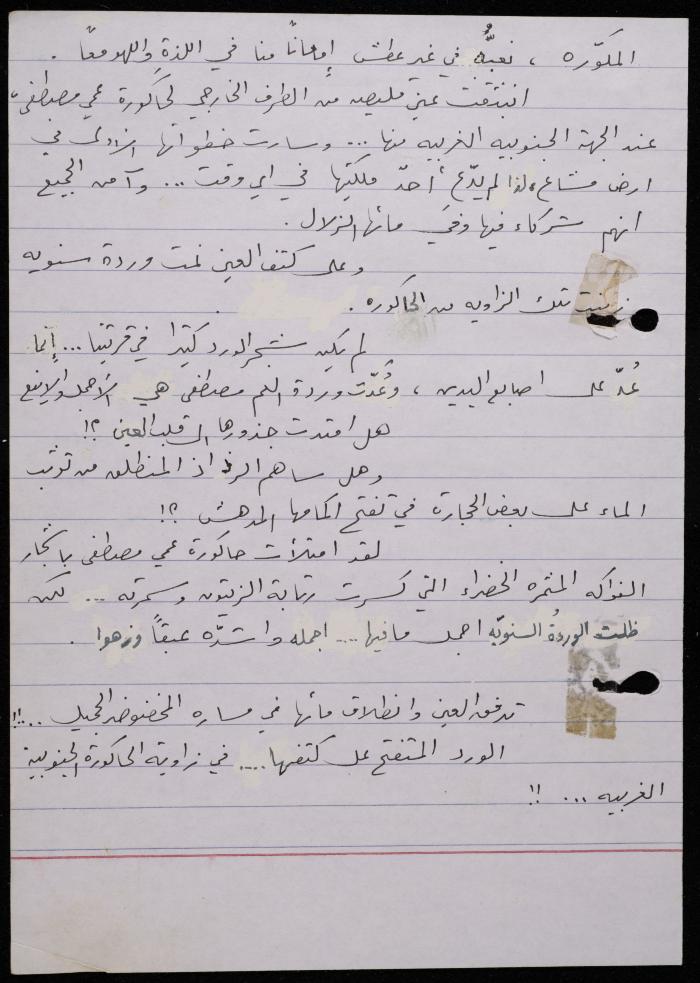 المكوّره ، نعبُّه في غير عطش إمعاناً منا في اللذة واللهو معاً .
انبثقت عين قليصه من الطرف الخارجي لحاكورة عمي مصطفى،
عند الجهة الجنوبيه الغربيه منها ... وسارت خطواتها الاولى في
ارض مشاع، لذا لم يدّعِ أحدٌ ملكيتها في اي وقت ... وآمن الجميع
انهم شركاء فيها وفي مائها الزلال .
وعلى كتف العين نمت وردة سنويه
زينت تلك الزاويه من الحاكوره .
لم يكن شجر الورد كثيراً في قريتنا ... إنما
عُدّ على اصابع اليدين ، وعُدّت وردة العم مصطفى هي الأجمل والاينع
هل امتدت جذورها الى قلب العين ؟!
وهل ساهم الرذاذ المنطلق من توثب
الماء على بعض الحجارة في تفتح اكمامها المدهش ؟!
لقد امتلأت حاكورة عمي مصطفى باشجار
الفواكه المثمره الخضراء التي كسرت رتابة الزيتون وسمرته ... لكن
ظلت الوردةُ السنويّه اجمل ما فيها .... اجمله واشدّه عبقاً وزهوا .
تدفق العين وانطلاق مائها في مساره المخضوضر الجميل ....!!
الورد المتفتح على كتفها .... في زاوية الحاكورة الجنوبية
الغربيه ... !!